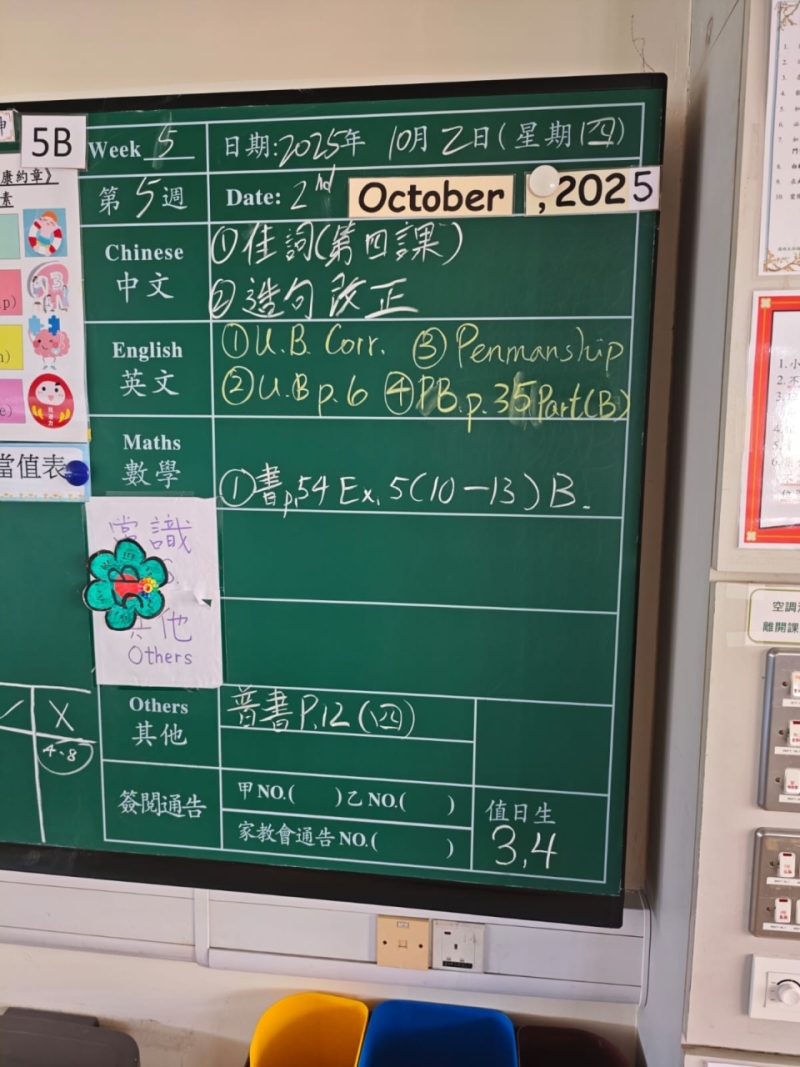 5B
康約章》
素
當值表
Week 5
日期:2025年 10月2日(星期四)
第5週
Date: 2nd October, 2025
Chinese
中文
①佳詞(第四課)
②造句改正
English
英文
①U.B. Corr. ③Penmanship
②U.B p.6 ④PB.p.35Part(B)
Maths
數學
①書p.54 Ex.5(10-13)B.
常識
其他
Others
Others
其他
普書P.12(四)
X
4.8
簽閱通告
甲NO.( )乙NO.( )
家教會通告NO.( )
值日生
3,4
空調
離開課